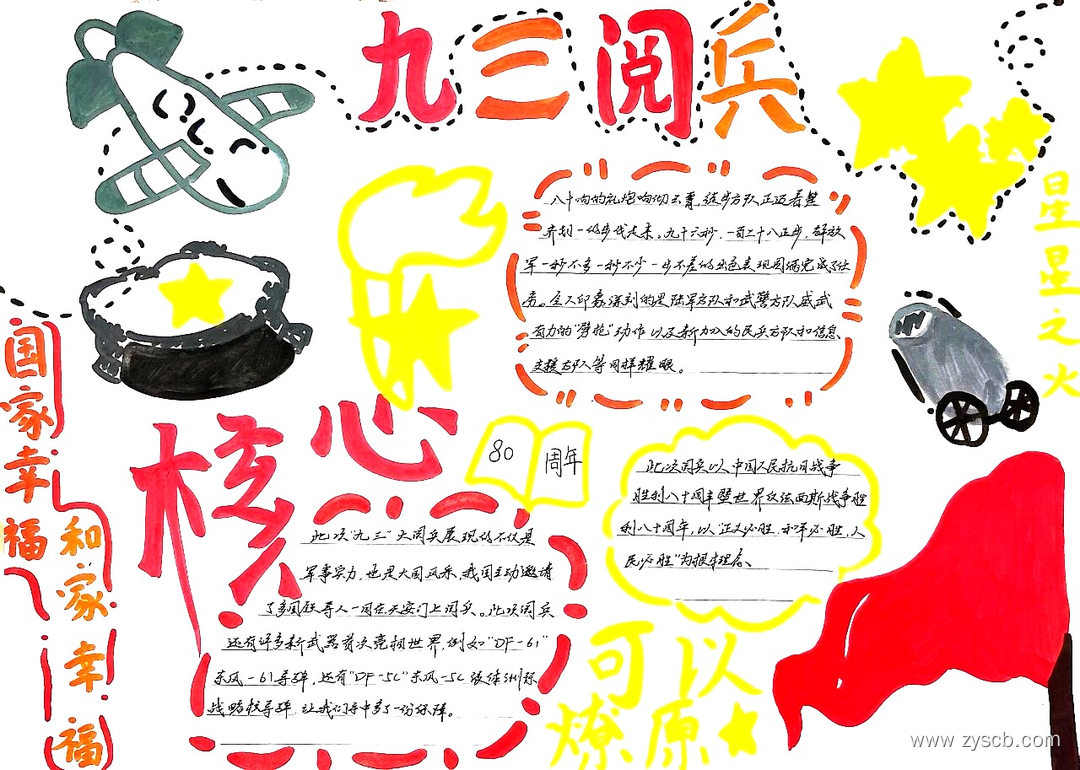 九三阅兵
八十响的礼炮响彻云霄,徒步方队正迈着整
齐划一的步伐走来。九十六秒,一百二十八正步,解放
军一秒不多一秒不少一步不差的出色表现圆满完成了任
务。令人印象深刻的是陆军方队和武警方队威武
有力的"劈枪"动作以及新加入的民兵方队和信息
支援部队等同样耀眼。
星星之火
国家幸福
和家幸福
核心
80
周年
此次阅兵以中国人民抗日战争
胜利八十周年暨世界反法西斯战争胜
利八十周年,以"正义必胜,和平必胜,人
民必胜"为根本理念、
此次"九三"大阅兵展现的不仅是
军事实力,也是大国风采,我国主动邀请
了多国领导人一同在天安门上阅兵。此次阅兵
还有许多新武器首次亮相世界,例如"DF-61"
东风-61导弹,还有"DF-5C"东风-5C液体洲际
战略核导弹,让我们手中多了一份保障。
可以
燎原
www.zyscb.com